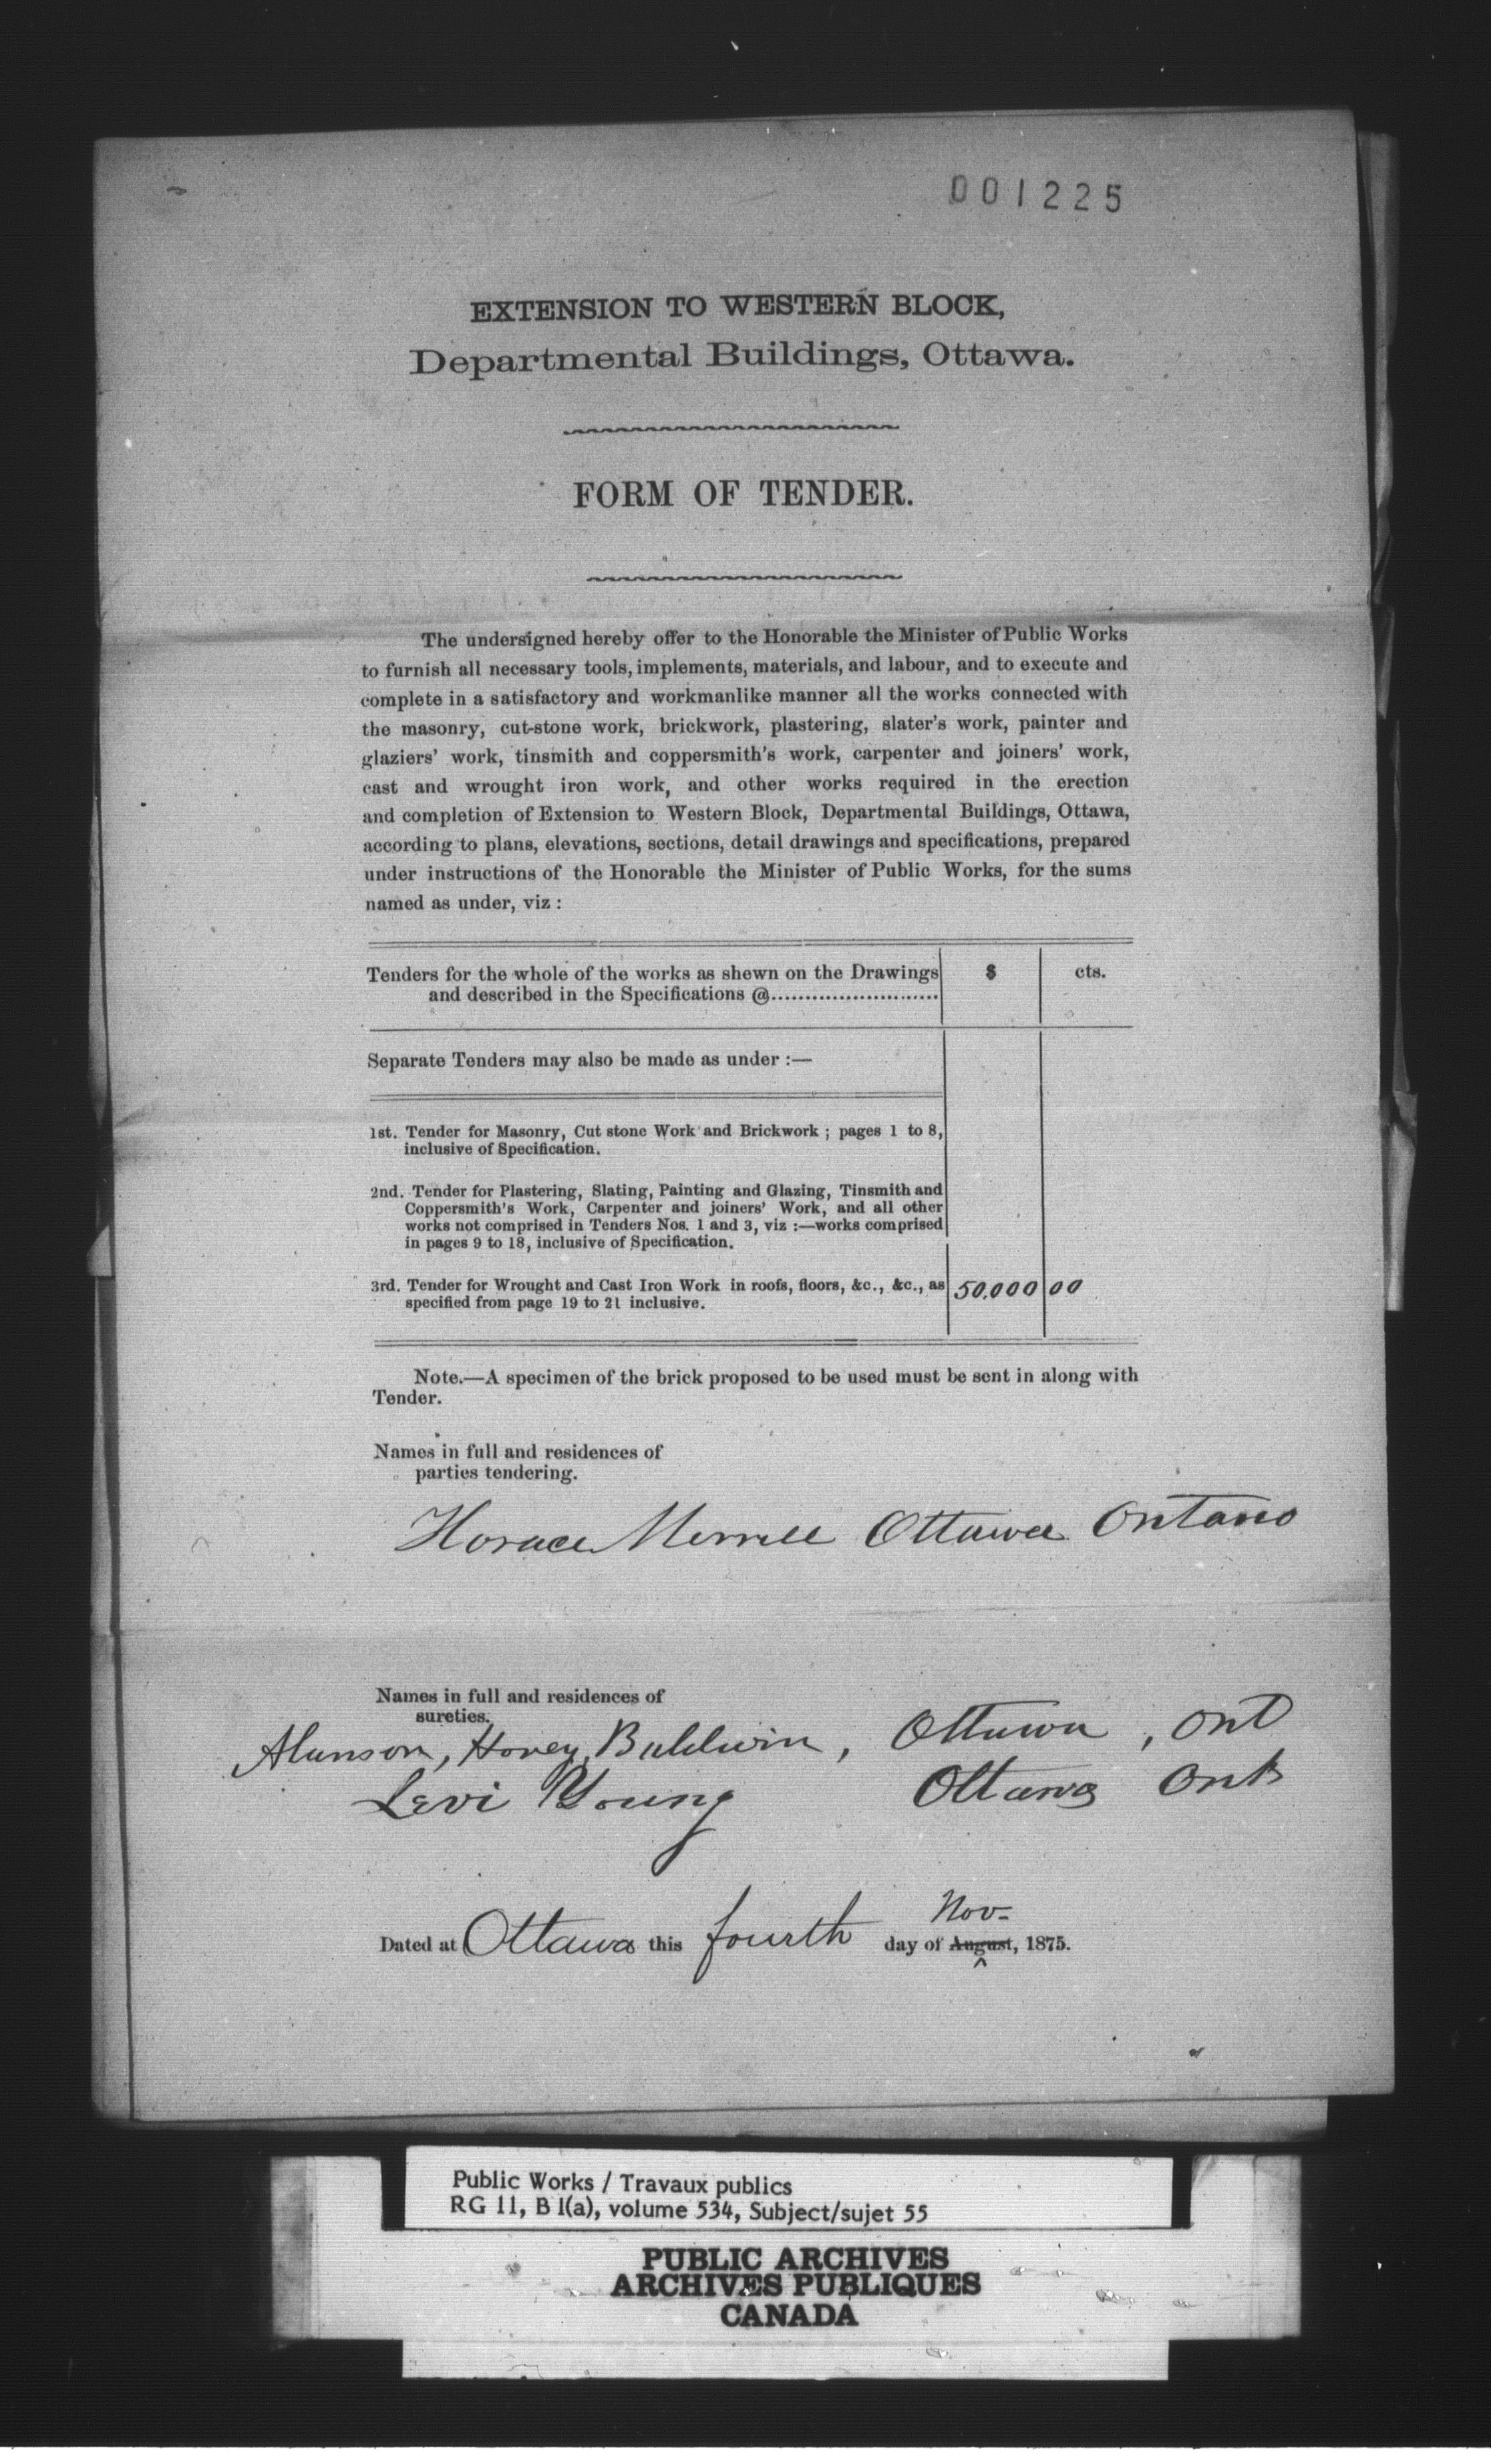 001225
EXTENSION TO WESTERN BLOCK,
Departmental Buildings, Ottawa.
FORM OF TENDER.
The undersigned hereby offer to the Honorable the Minister of Public Works
to furnish all necessary tools, implements, materials, and labour, and to execute and
complete in a satisfactory and workmanlike manner all the works connected with
the masonry, cut-stone work, brickwork, plastering, slater's work, painter and
glaziers' work, tinsmith and coppersmith's work, carpenter and joiners' work,
cast and wrought iron work, and other works required in the erection
and completion of Extension to Western Block, Departmental Buildings, Ottawa,
according to plans, elevations, sections, detail drawings and specifications, prepared
under instructions of the Honorable the Minister of Public Works, for the sums
named as under, viz :
Tenders for the whole of the works as shewn on the Drawings $ cts.
and described in the Specifications @.........................
Separate Tenders may also be made as under :—
1st. Tender for Masonry, Cut stone Work and Brickwork ; pages 1 to 8,
inclusive of Specification.
2nd. Tender for Plastering, Slating, Painting and Glazing, Tinsmith and
Coppersmith's Work, Carpenter and joiners' Work, and all other
works not comprised in Tenders Nos. 1 and 3, viz :—works comprised
in pages 9 to 18, inclusive of Specification.
3rd. Tender for Wrought and Cast Iron Work in roofs, floors, &c., &c., as 50.000 00
specified from page 19 to 21 inclusive.
Note.—A specimen of the brick proposed to be used must be sent in along with
Tender.
Names in full and residences of
parties tendering.
Horace Merrill Ottawa Ontario
Names in full and residences of
sureties.
Alanson, Hovey, Baldwin, Ottawa, Ont
Levi Young Ottawa Ont
Nov-
Dated at Ottawa this fourth day of August, 1875.
Public Works / Travaux publics
RG 11, B 1(a), volume 534, Subject/sujet 55
PUBLIC ARCHIVES
ARCHIVES PUBLIQUES
CANADA